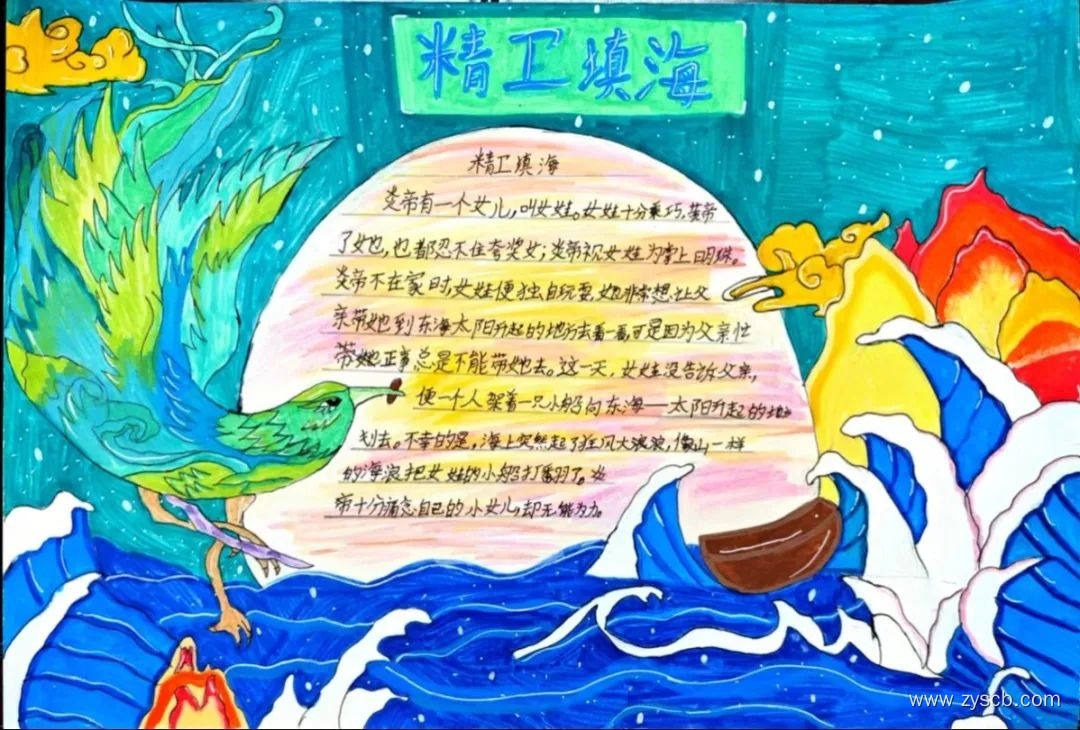 精卫填海
精卫填海
炎帝有一个女儿，叫女娃。女娃十分乖巧，黄帝
了她，也都忍不住夸奖女；炎帝视女娃为掌上明珠。
炎帝不在家时，女娃便独自玩耍，她非常想让父
亲带她到东海太阳升起的地方去看一看可是因为父亲忙
带她正事总是不能带她去。这一天，女娃没告诉父亲，
便一个人架着一只小船向东海——太阳升起的地
划去。不幸的是，海上突然起了狂风大浪浪，像山一样
的海浪把女娃的小船打翻了。炎
帝十分痛念自己的小女儿，却无能为力。
www.zyscb.com